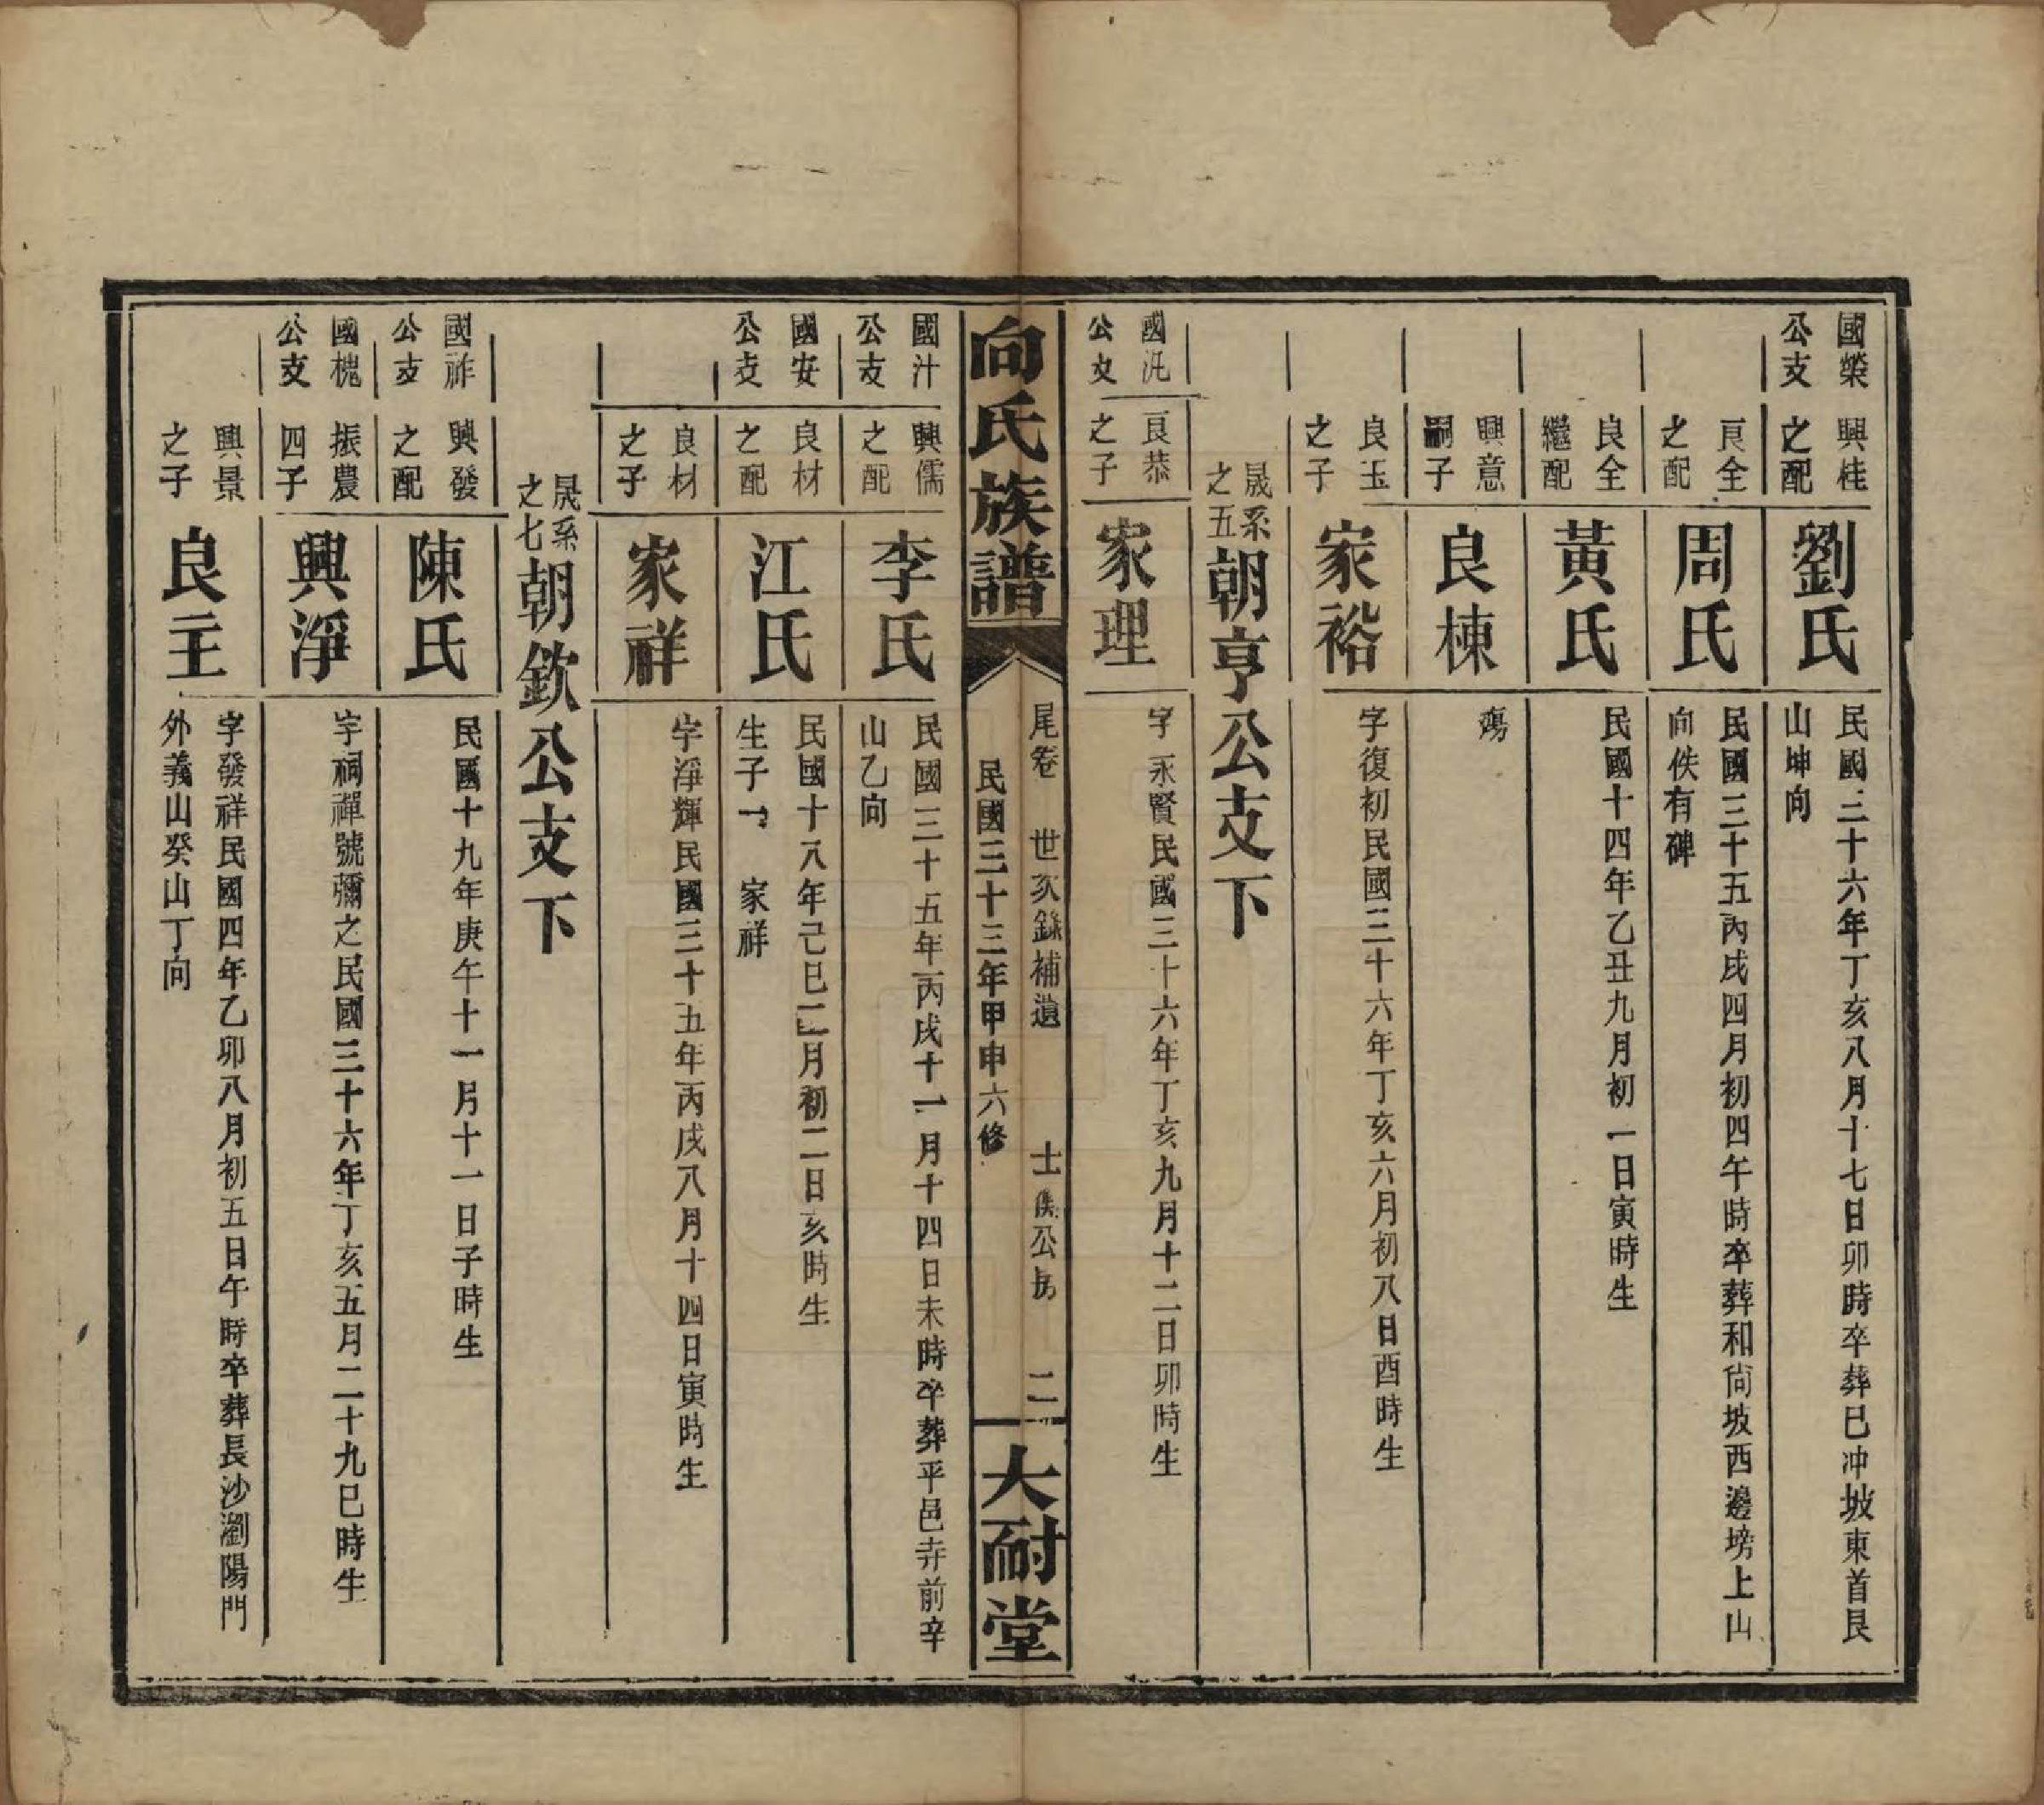 國榮公支
興桂之配
劉氏
民國三十六年丁亥八月十七日卯時卒葬巳冲坡東首艮
山坤向
良全之配
周氏
民國三十五丙戌四月初四午時卒葬和尙坡西邊塝上山
向佚有碑
良全繼配
黃氏
民國十四年乙丑九月初一日寅時生
興意嗣子
良棟
殤
良玉之子
家裕
字復初民國三十六年丁亥六月初八日酉時生
晟系之五
朝亨公支下
國汎公支
良恭之子
家理
字永賢民國三十六年丁亥九月十二日卯時生
向氏族譜
尾卷 世次錄補遺 士儁公房 二
民國三十三年甲申六修
大耐堂
國汁公支
興儒之配
李氏
民國三十五年丙戌十一月十四日未時卒葬平邑寺前辛
山乙向
國安公支
良材之配
江氏
民國十八年己巳二月初二日亥時生
生子一 家祥
良材之子
家祥
字淨輝民國三十五年丙戌八月十四日寅時生
晟系之七
朝欽公支下
國祚公支
興發之配
陳氏
民國十九年庚午十一月十一日子時生
國槐公支
振農四子
興淨
字祠禪號彌之民國三十六年丁亥五月二十九巳時生
興景之子
良主
字發祥民國四年乙卯八月初五日午時卒葬長沙瀏陽門
外義山癸山丁向